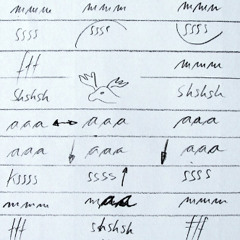 mmm mmm mmm
ssss ssss ssss
fff mmm
shshsh shshsh
aaa aaa aaa
aaa aaa aaa
kssss ssss ssss
mmm maa mmm
fff shshsh fff